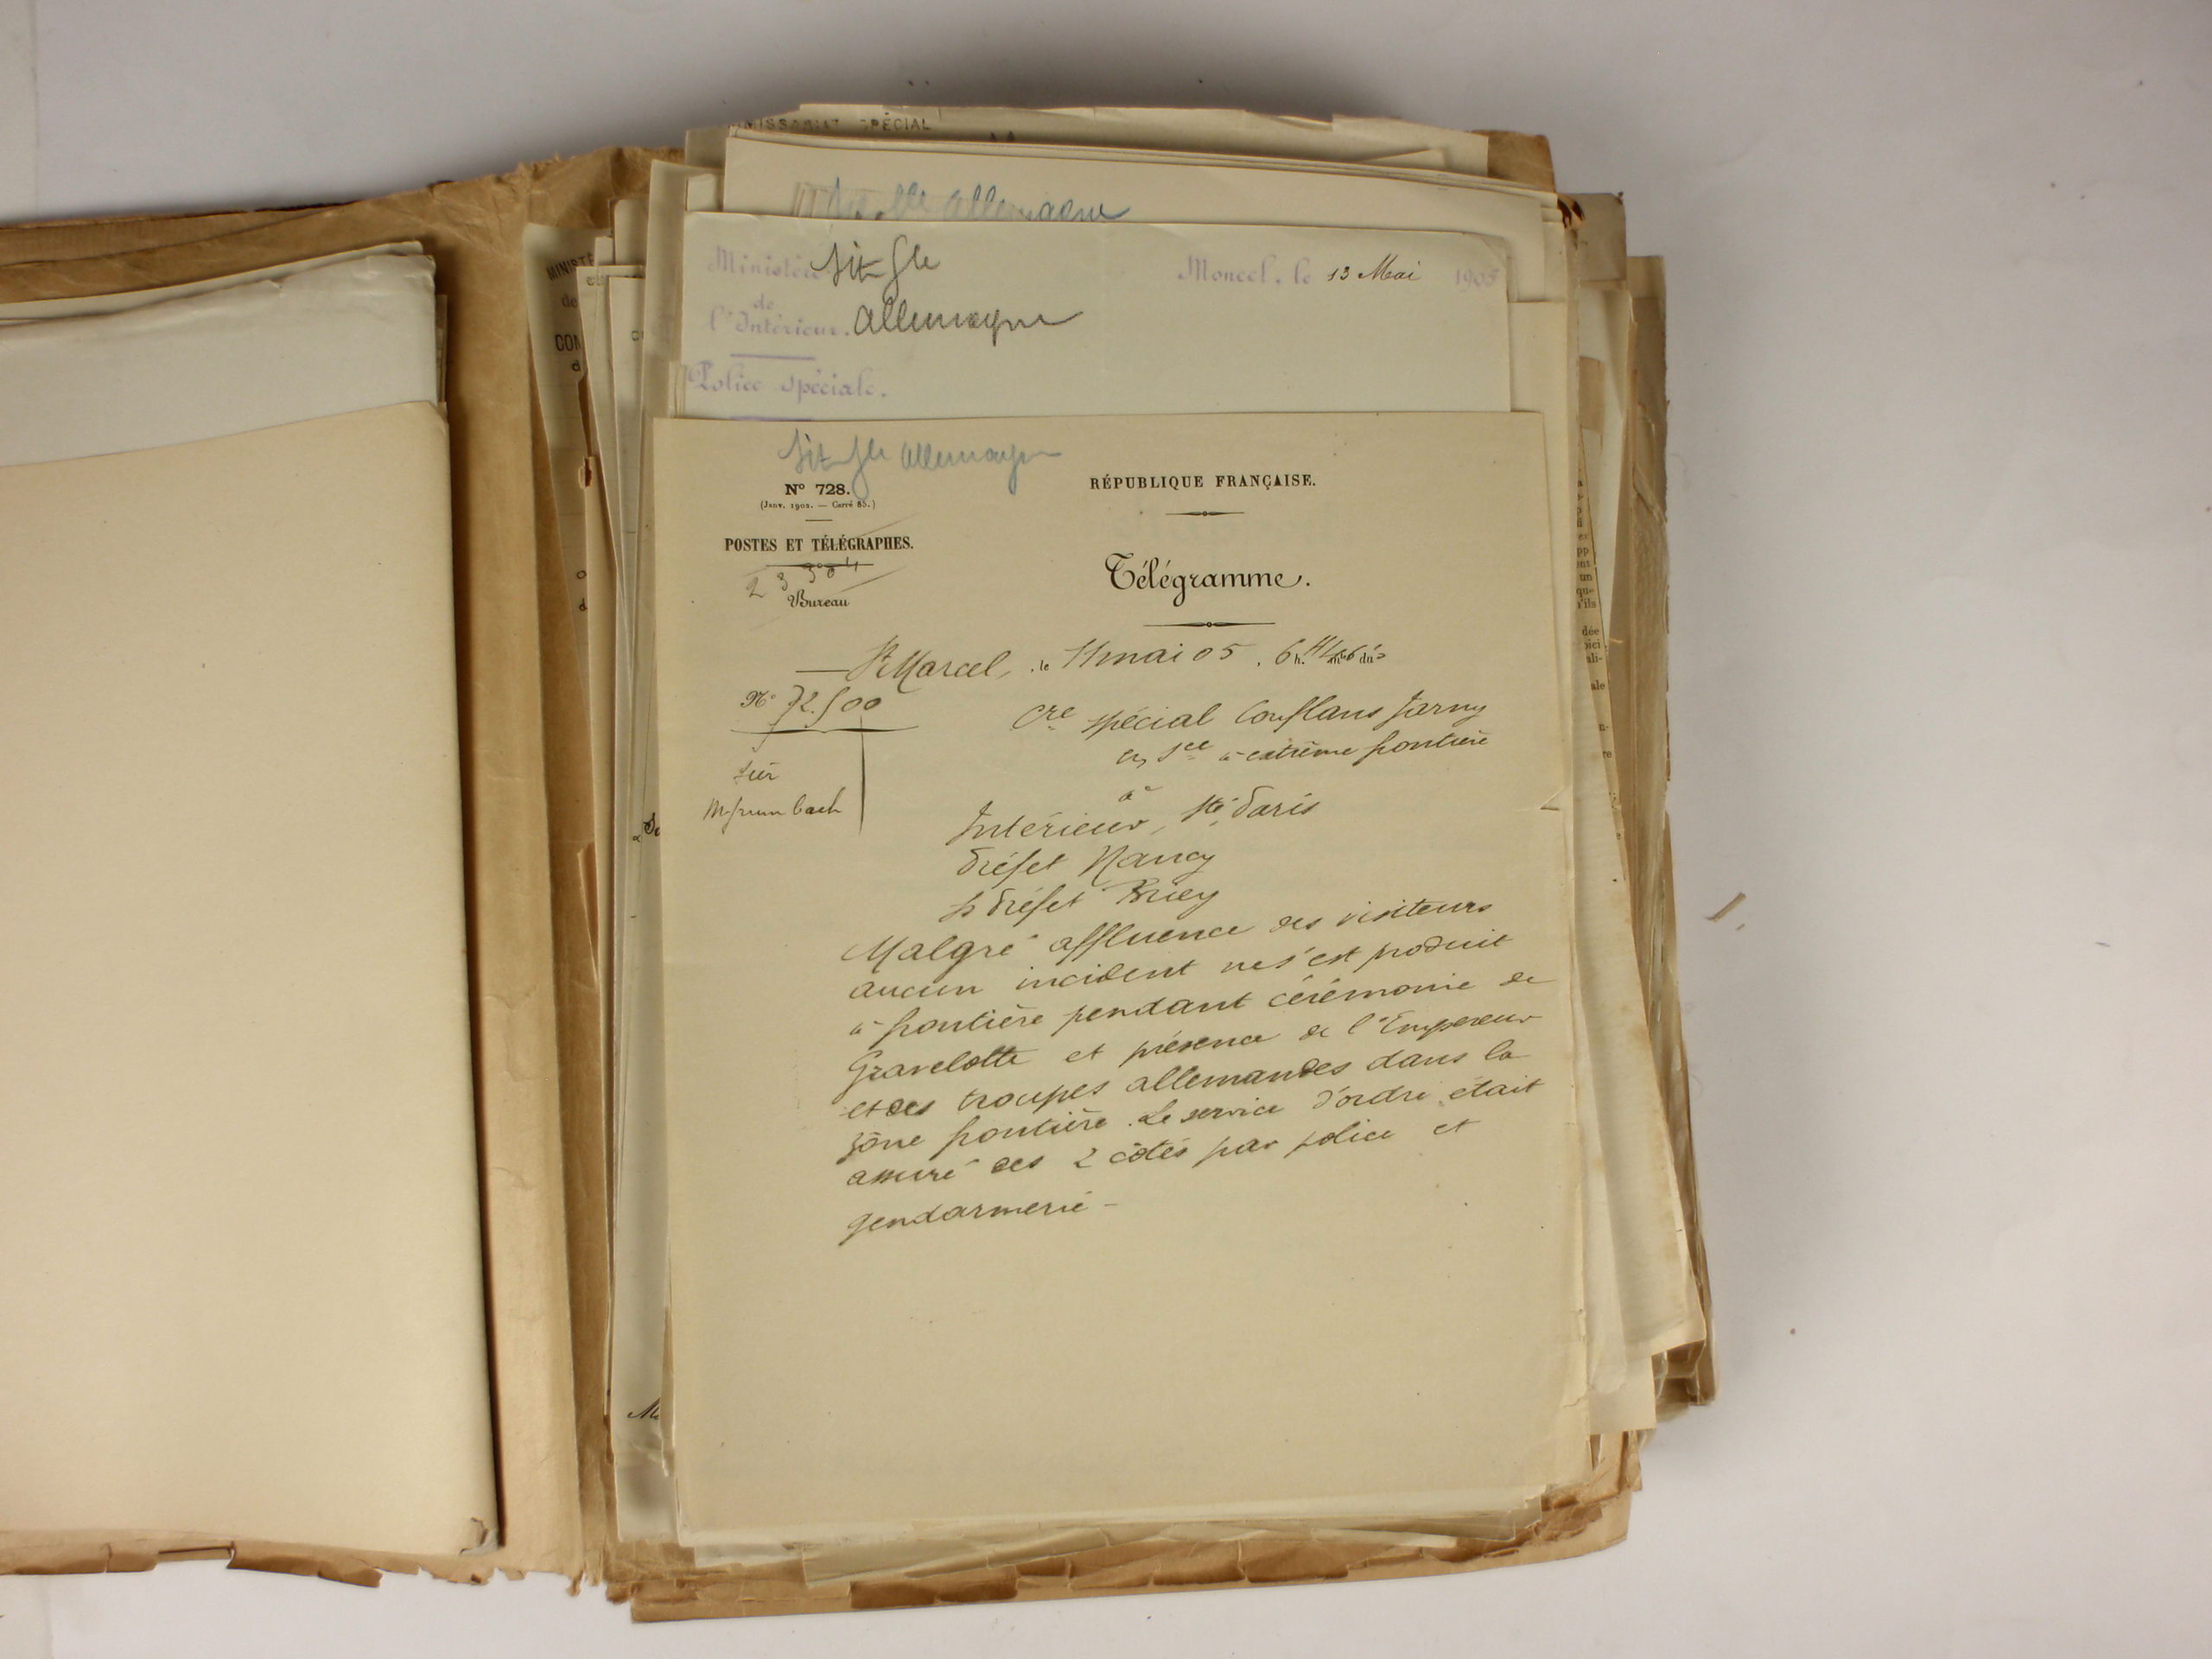 SPÉCIAL
Allemagne
Ministère Sit Gle
de
l'Intérieur. Allemagne
Moncel, le 13 Mai 1905
Police Spéciale.
Sit Gle Allemagne
N° 728.
(Janv. 1902. — Carré 85.)
POSTES ET TÉLÉGRAPHES.
Bureau
RÉPUBLIQUE FRANÇAISE.
Télégramme.
St Marcel, le 11 mai 05, 6 h.
N° 72.500
Cre spécial Conflans Jarny
en sce à extrême frontière
à
Intérieur, Sté, Paris
Préfet Nancy
S Préfet Briey
Malgré affluence des visiteurs
aucun incident ne s'est produit
à frontière pendant cérémonie de
Gravelotte et présence de l'Empereur
et des troupes allemandes dans la
zône frontière. Le service d'ordre était
assuré des 2 côtés par police et
gendarmerie -